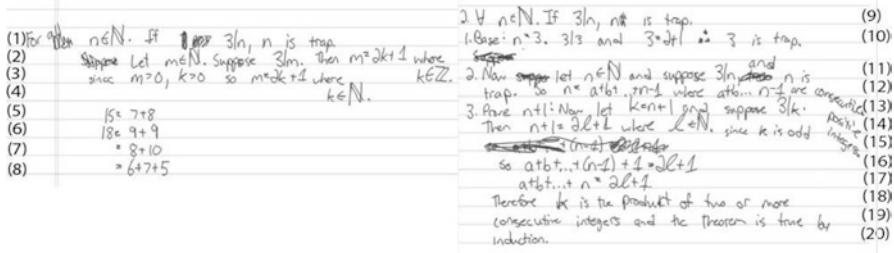 (1) For all n∈ℕ. If 3|n, n is trap.
(2) Let m∈ℕ. Suppose 3|m. Then m=2k+1 where
(3) since m>0, k>0 so m=2k+1 where k∈ℤ.
(4) k∈ℕ.
(5) 15= 7+8
(6) 18= 9+9
(7) = 8+10
(8) = 6+7+5
2. ∀ n∈ℕ. If 3|n, n is trap. (9)
1. Base: n=3. 3|3 and 3=2+1 ∴ 3 is trap. (10)
2. Now let n∈ℕ and suppose 3|n, and n is (11)
trap. So n= a+b+..+n-1 where a+b... n-1 are consecutive (12)
3. Prove n+1: Now let k=n+1 and suppose 3|k. positive (13)
Then n+1=2l+1 where l∈ℕ. since k is odd integers (14)
+(n-1) (15)
so a+b+...+(n-1)+1=2l+1 (16)
a+b+...+n=2l+1 (17)
Therefore k is the product of two or more (18)
consecutive integers and the theorem is true by (19)
induction. (20)